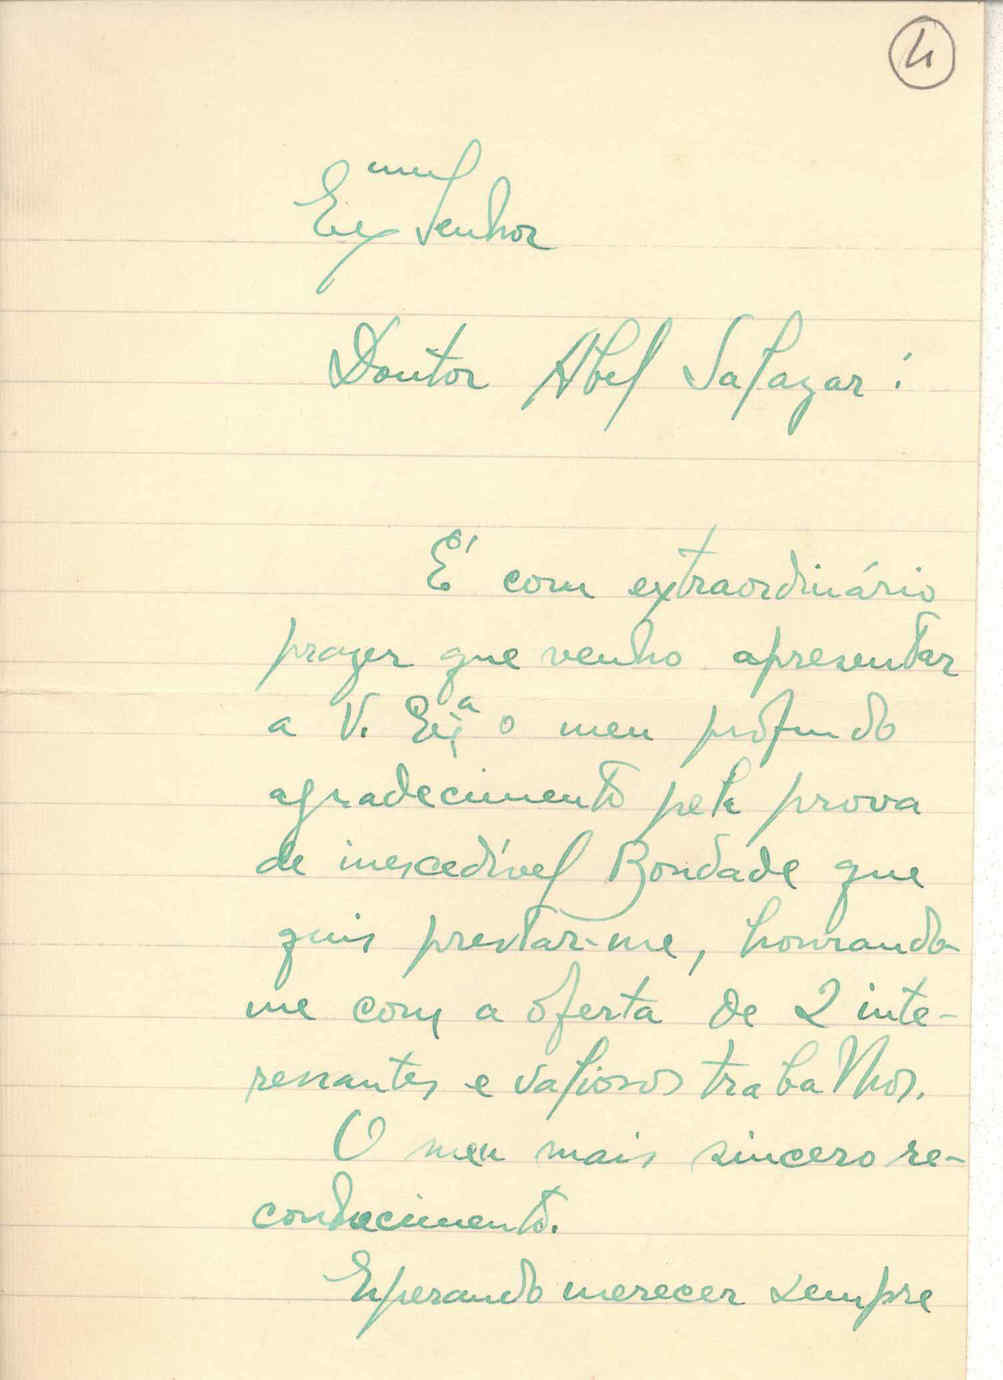 4
Exmº Senhor
Doutor Abel Salazar:
É com extraordinário
prazer que venho apresentar
a V. Exª o meu profundo
agradecimento pela prova
de inexcedível Bondade que
quis prestar-me, honrando-
me com a oferta de 2 inte-
ressantes e valiosos trabalhos.
O meu mais sincero re-
conhecimento.
Esperando merecer sempre